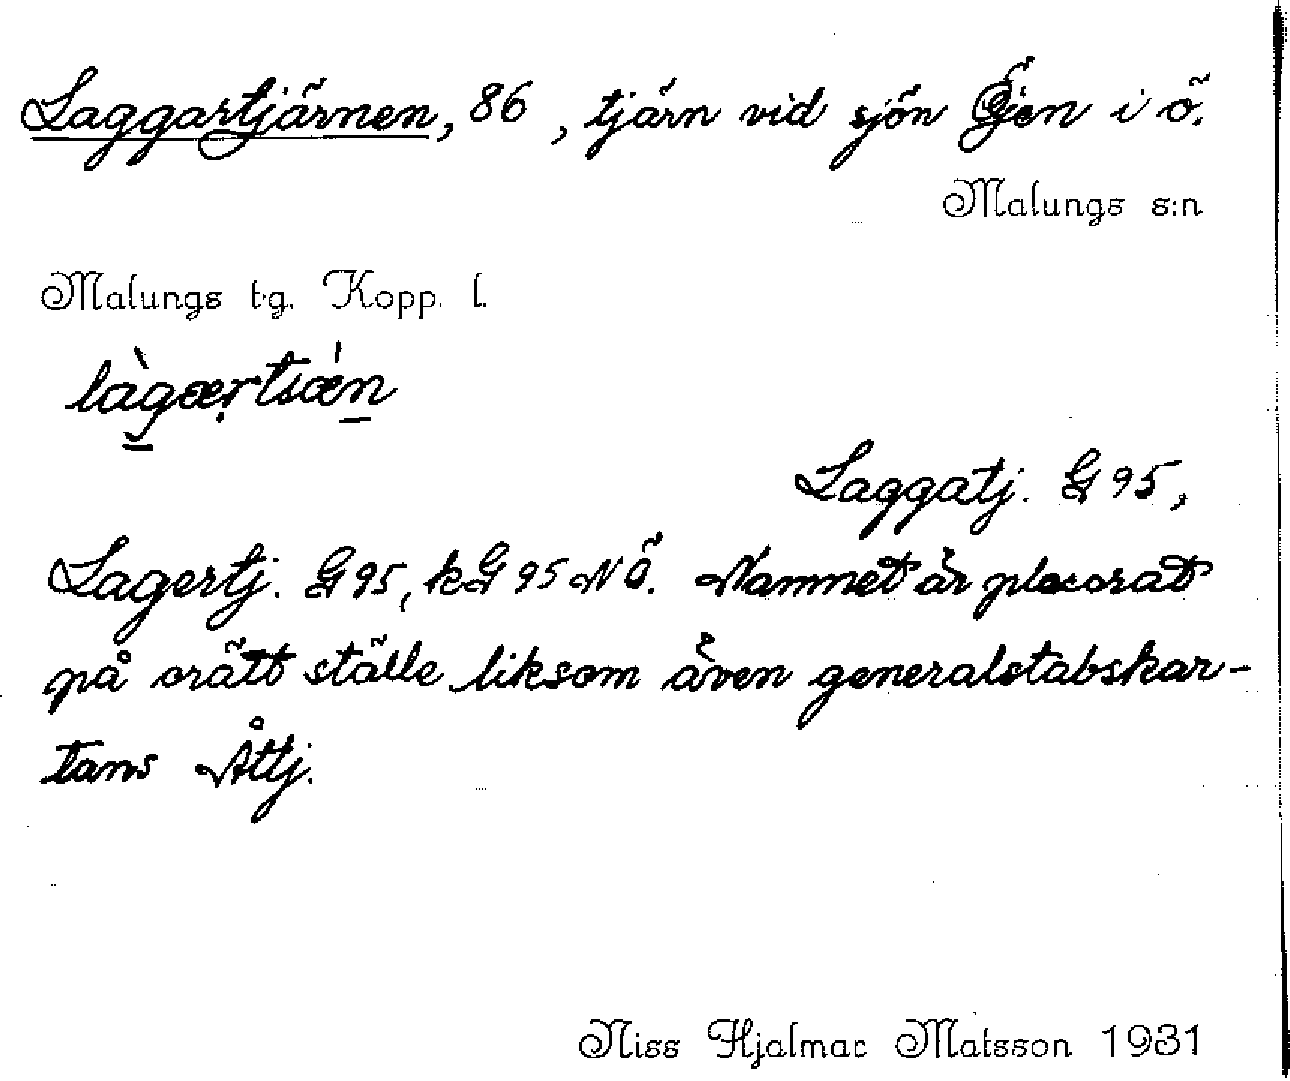 Laggartjärnen, 86, tjärn vid sjön Öjen i ö.
Malungs s:n
Malungs tg. Kopp. l.
Laggatj. G 95,
Lagertj. G 95, kG 95 NÖ. Namnet är placerat
på orätt ställe liksom även generalstabskar-
tans Åttj.
Niss Hjalmar Matsson 1931